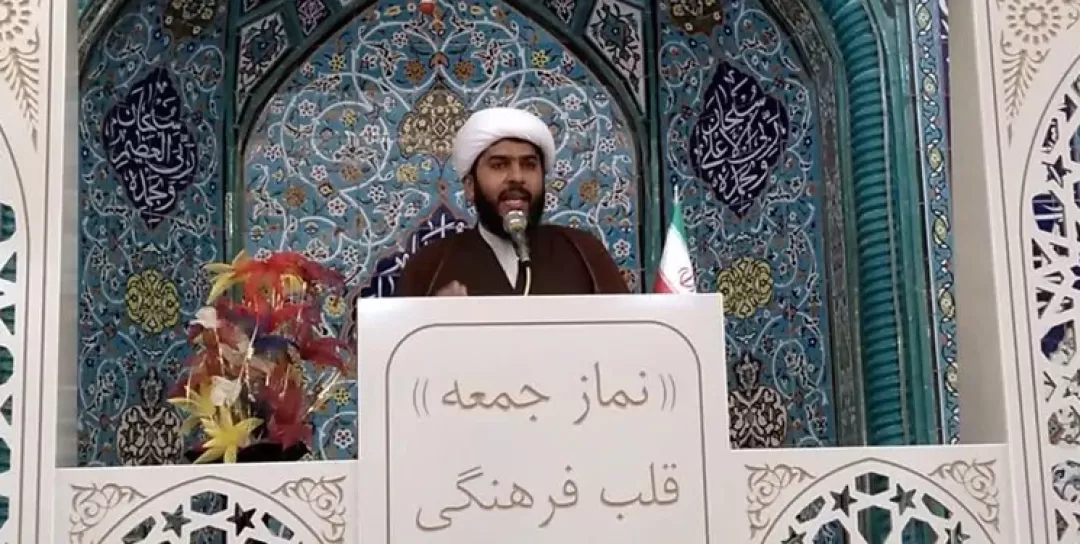 سبحان
ربی الاعلی
و بحمده
سبحان
ربی العظیم
و بحمده
((نماز جمعه))
قلب فرهنگی